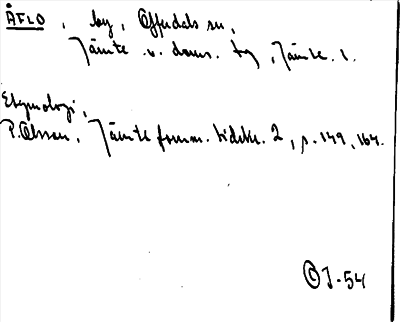 ÅFLO, by, Offerdals sn,
Jämte. v. doms. tg, Jämte. l.
Etymologi,
P. Olsson, Jämte fornm. tidskr. 2, s. 149, 164.
© J-54